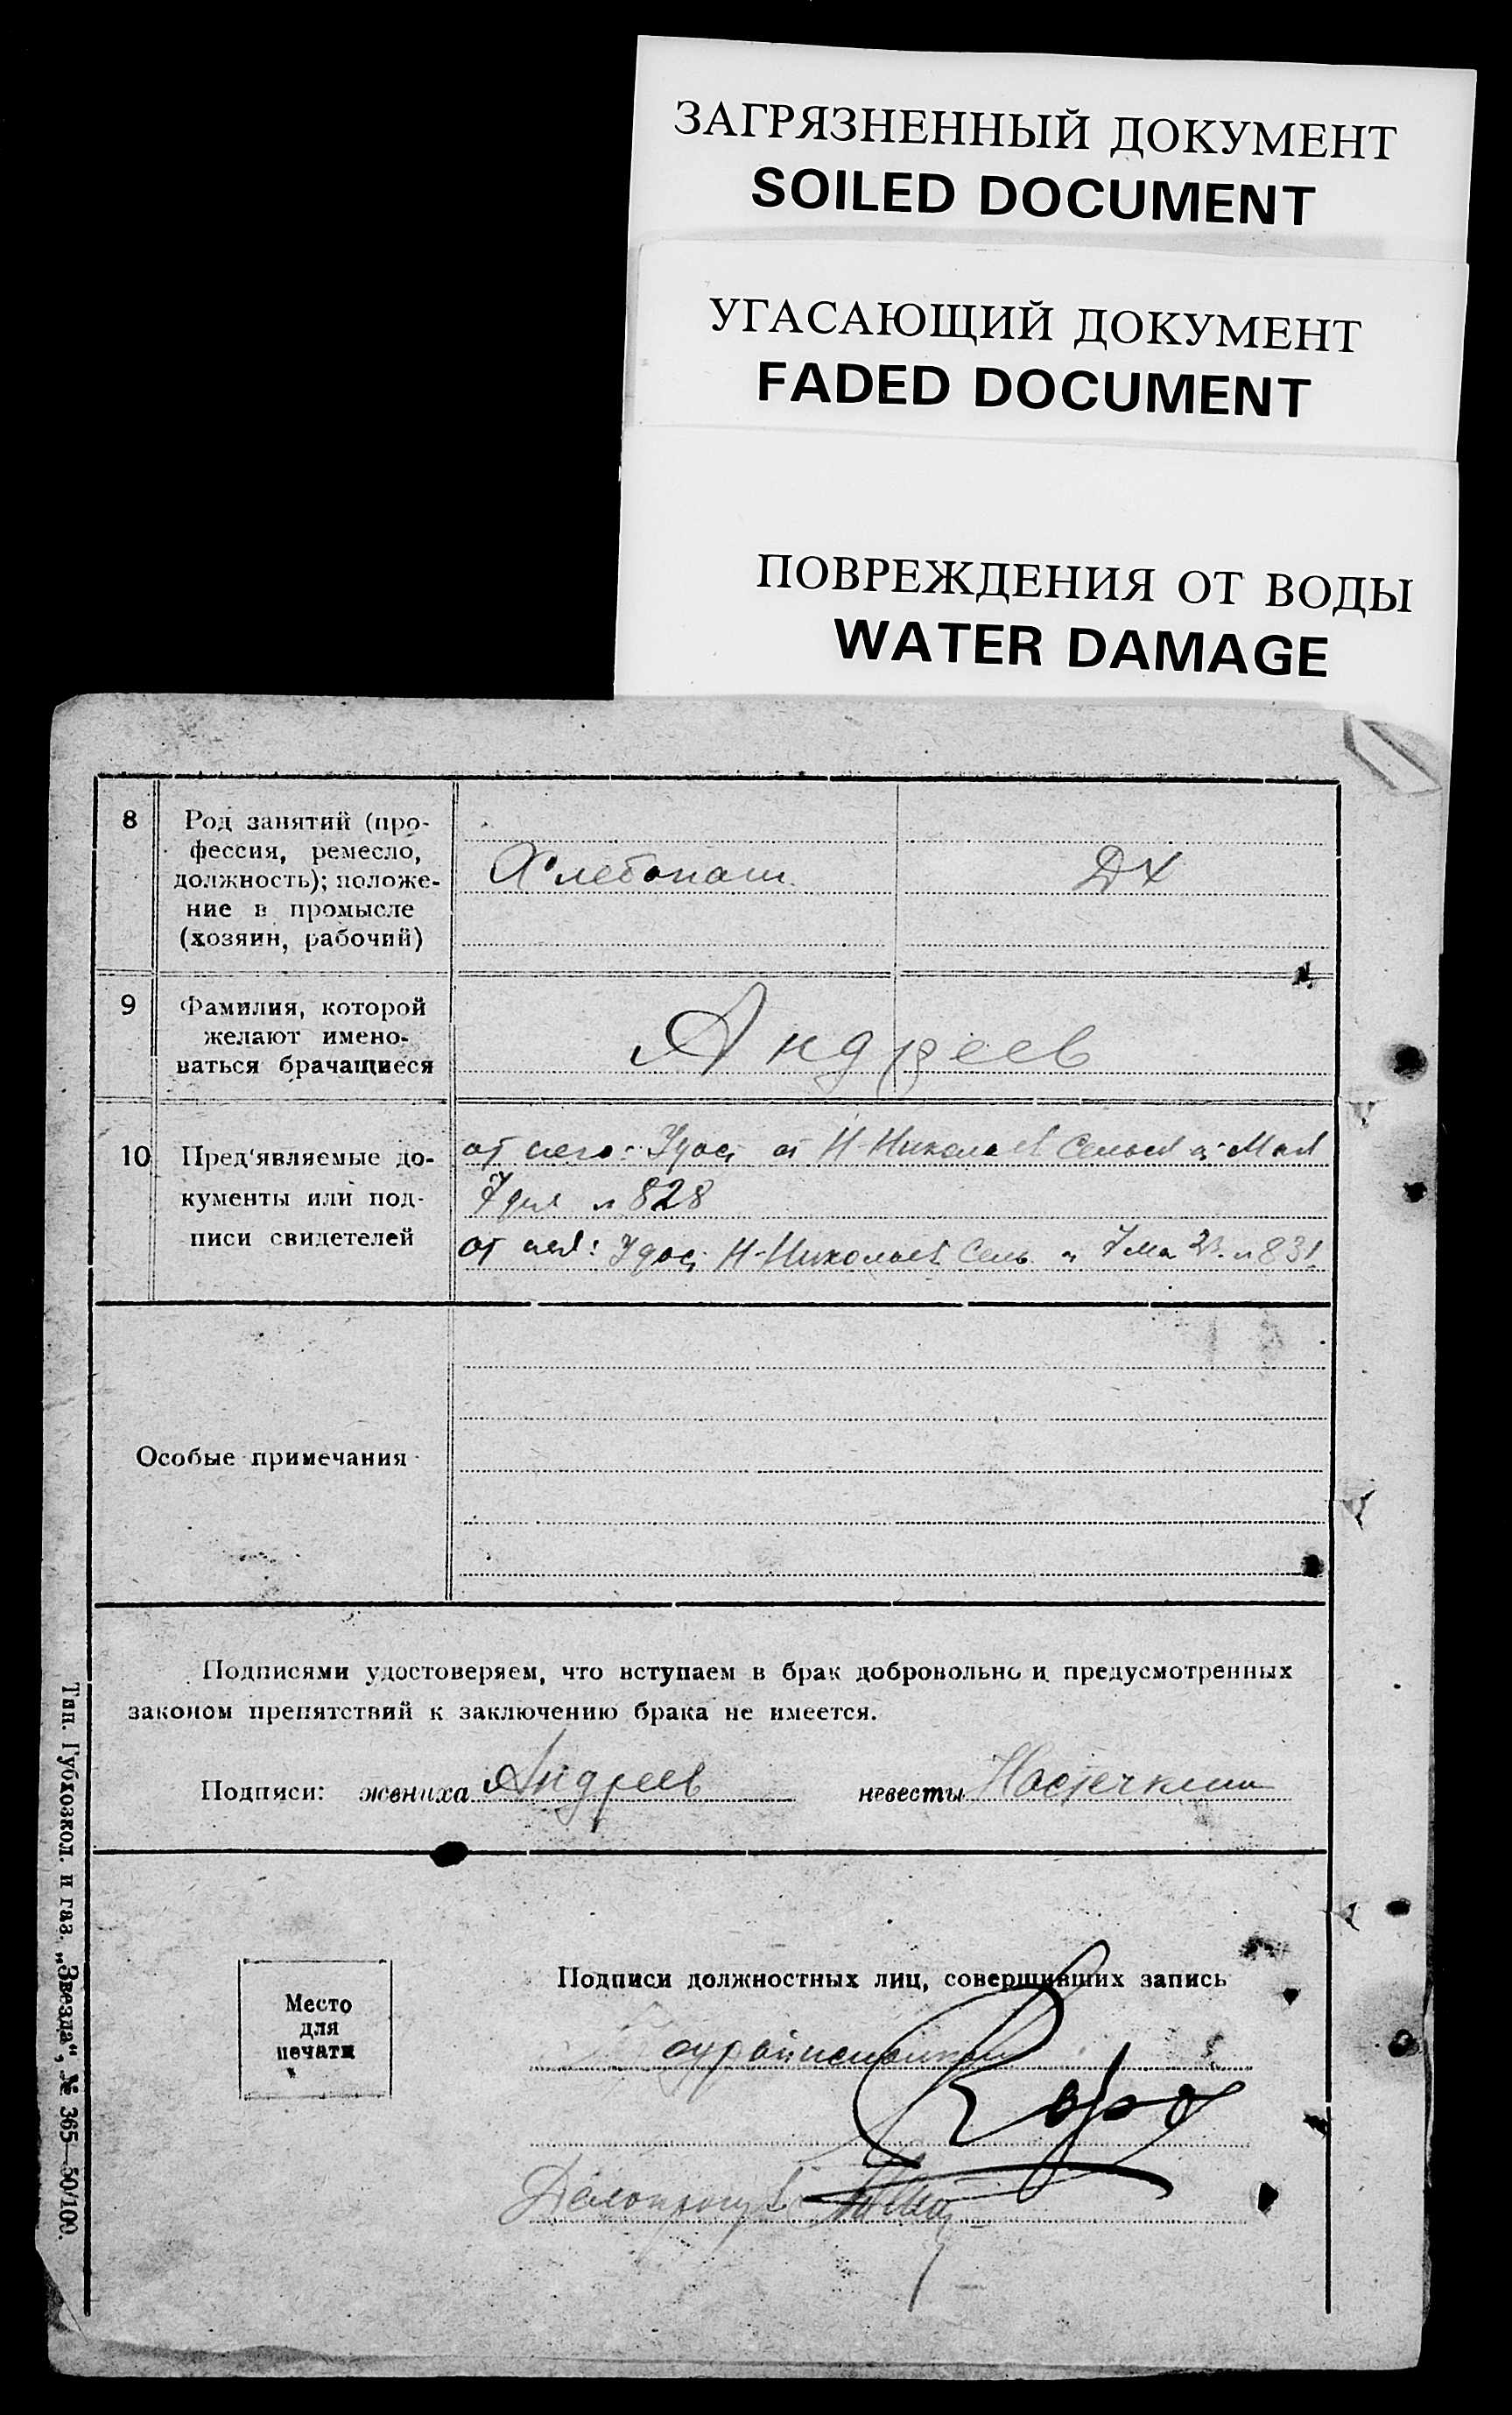 ЗАГРЯЗНЕННЫЙ ДОКУМЕНТ
SOILED DOCUMENT
УГАСАЮЩИЙ ДОКУМЕНТ
FADED DOCUMENT
ПОВРЕЖДЕНИЯ ОТ ВОДЫ
WATER DAMAGE
8
Род занятий (про-
фессия, ремесло,
должность); положе-
ние в промысле
(хозяин, рабочий)
Хлебопаш.
ДХ
9
Фамилия, которой
желают имено-
ваться брачащиеся
Андреев
10
Пред'являемые до-
кументы или под-
писи свидетелей
от него: Удос от Н-Николаев Сельс Мая
7 дня № 828
от нея: Удос Н-Николаев Сель 7 мая 23 № 831.
Особые примечания
Подписями удостоверяем, что вступаем в брак добровольно и предусмотренных
законом препятствий к заключению брака не имеется.
Подписи: жениха Андреев невесты
Подписи должностных лиц, совершивших запись
Место
для
печати
Делопроизв
Тип. Губхозкол. и газ. „Звезда“, № 365—50/100.